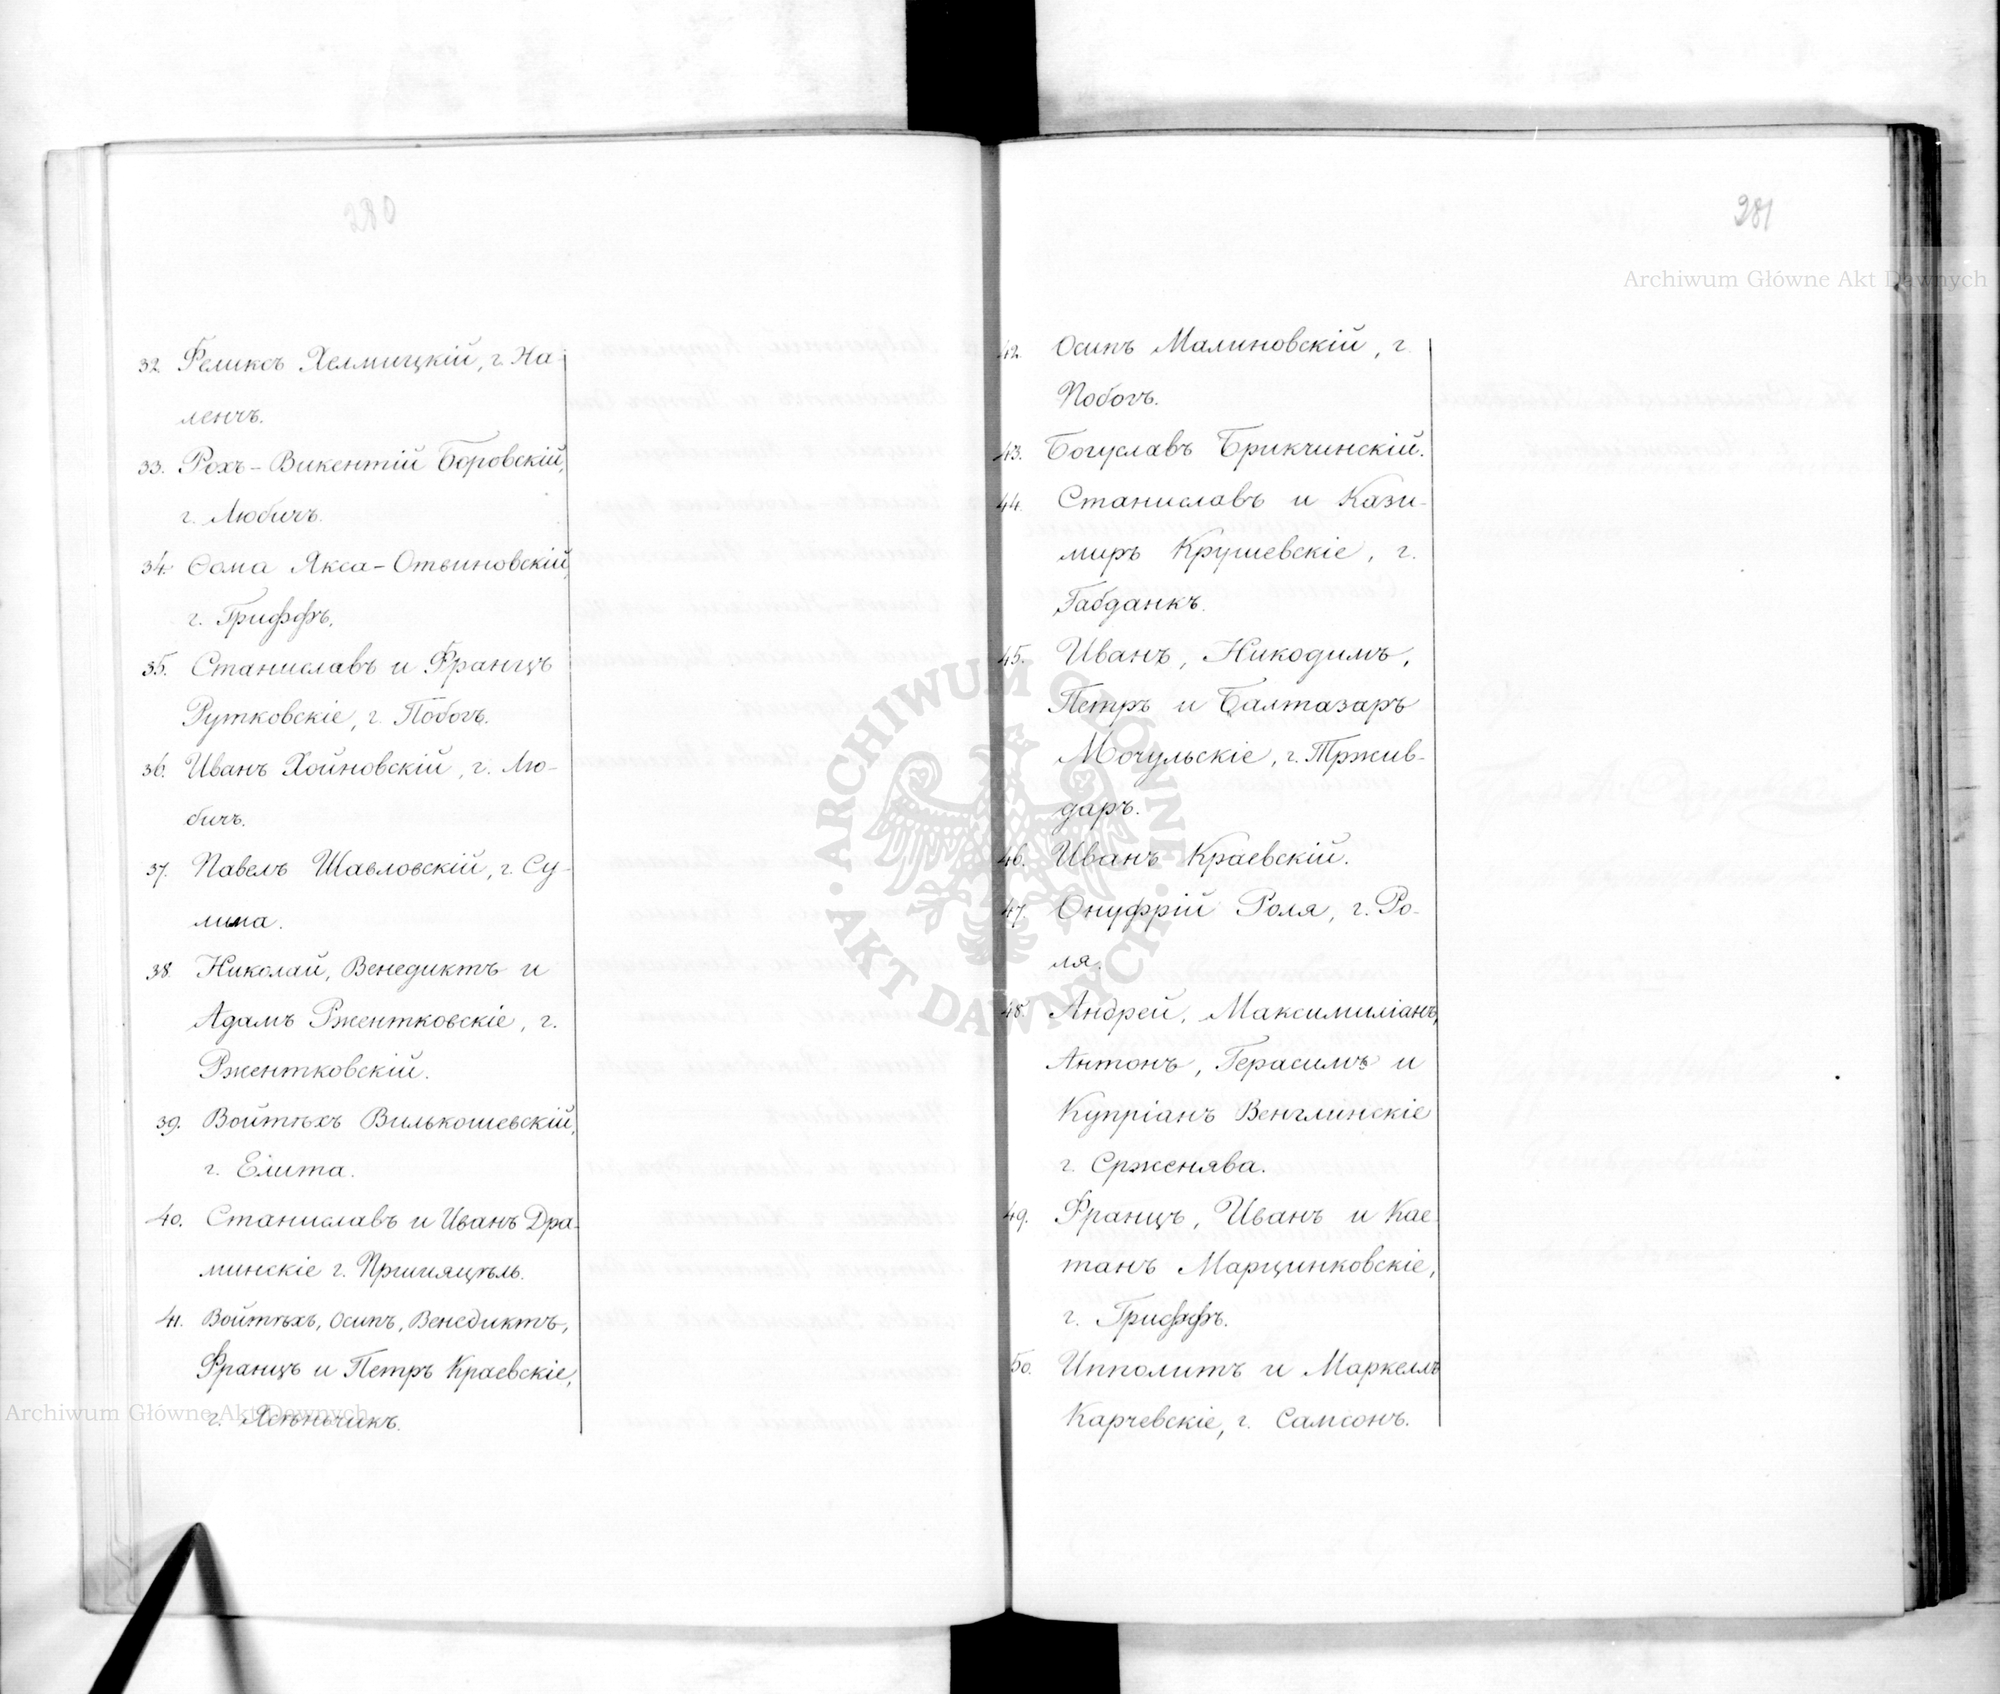 280
32. Феликсъ Хелмицкій, г. На-
ленчъ.
33. Рохъ-Викентій Боровскій,
г. Любичъ.
34. Сома Якса-Отвиновскій,
г. Гриффъ.
35. Станиславъ и Францъ
Рутковскіе, г. Побогъ.
36. Иванъ Хойновскій, г. Лю-
бичъ.
37. Павелъ Шавловскій, г. Су-
лима.
38. Николай, Венедиктъ и
Адамъ Ржентковскіе, г.
Ржентковскій.
39. Войтѣхъ Вилькошевскій,
г. Елита.
40. Станиславъ и Иванъ Дра-
минскіе г. Пршияцѣль.
41. Войтѣхъ, Осипъ, Венедиктъ,
Францъ и Петръ Краевскіе,
г. Ясѣньчикъ.
Archiwum Główne Akt Dawnych
281
Archiwum Główne Akt Dawnych
42. Осипъ Малиновскій, г.
Побогъ.
43. Богуславъ Брикчинскій.
44. Станиславъ и Кази-
миръ Крушевскіе, г.
Габданкъ.
45. Иванъ, Никодимъ,
Петръ и Балтазаръ
Мочульскіе, г. Тржив-
даръ.
46. Иванъ Краевскій.
47. Онуфрій Роля, г. Ро-
ля.
48. Андрей, Максимиліанъ,
Антонъ, Герасимъ и
Купріанъ Венглинскіе
г. Сржснява.
49. Францъ, Иванъ и Кае-
танъ Марцинковскіе,
г. Гриффъ.
50. Ипполитъ и Маркеллъ
Карчевскіе, г. Самсонъ.
ARCHIWUM GŁÓWNE · AKT DAWNYCH ·